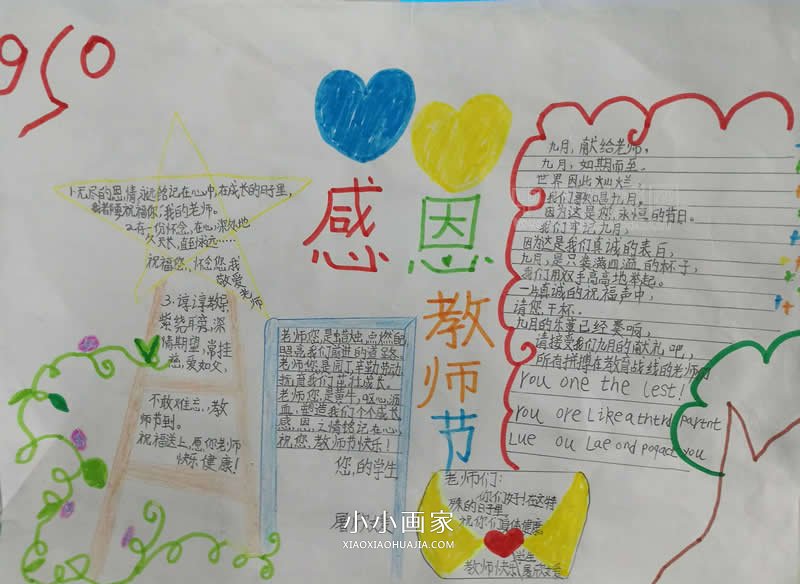 感恩
教师节
1、无尽的恩情,永远铭记在心中,在成长的日子里,
祝福您,我的老师。
2、在一份怀念,在心深处地
久天长,直到永远……
祝福您,怀念您,我
敬爱
老师
3、谆谆教导,
萦绕耳旁,深
情期望,常挂
慈,爱如父,
不敢难忘,教
师节到。
祝福送上,愿你老师
快乐健康!
老师您是蜡烛,点燃自
照亮我们前进的道路。
老师您是园丁辛勤劳动,
抚育我们茁壮成长。
老师您是黄牛,呕心沥
血,塑造我们个个成长
感恩之情铭记在心,
祝您教师节快乐!
您,的学生
老师们:
你们好!在这特
殊的日子里
祝你们身体健康
学生
教师快乐
九月,献给老师,
九月,如期而至.
世界因此灿烂,
我们歌唱九月。
因为这是您,永恒的节日。
我们牢记九月,
因为这是我们真诚的表白,
九月,是只装满四溢的杯子,
我们用双手高高地举起。
一片真诚的祝福声中,
请您干杯.
九月的乐章已经奏响,
请接受我们九月的献礼吧,
所有拼搏在教育战线的老师们
You one the lest!
You ore Like a thtrd partnt
Lue ou Lae ond poqact you
小小画家
XIAOXIAOHUAJIA.COM